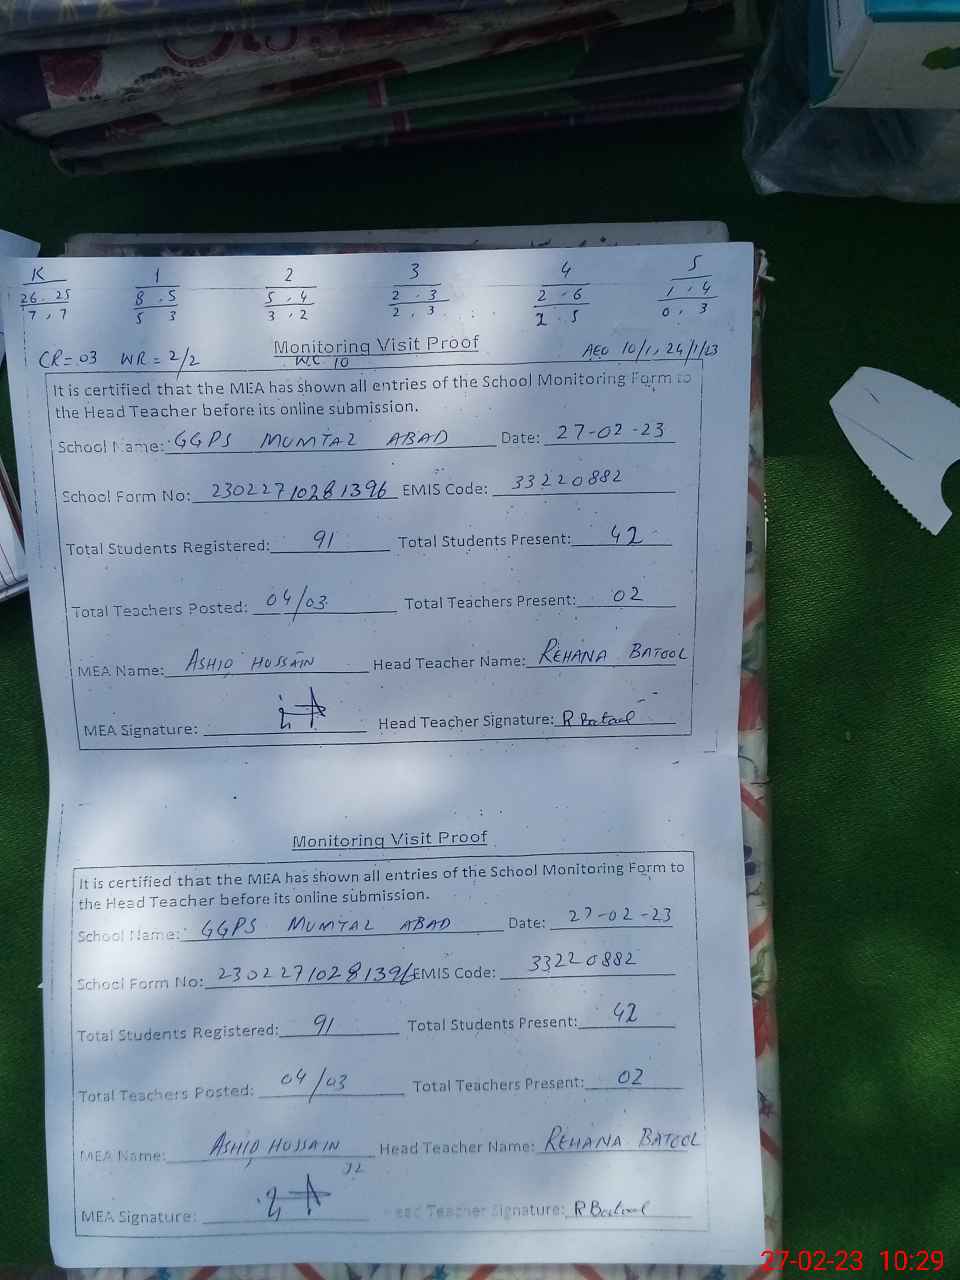 K 1 2 3 4 5
26 . 25 8 . 5 5 . 4 2 . 3 2 . 6 1 , 4
7 , 7 5 3 3 , 2 2 , 3 2 . 5 0 , 3
Monitoring Visit Proof
CR = 03 WR = 2/2 WC 10 AEO 10/1, 24/1/23
It is certified that the MEA has shown all entries of the School Monitoring Form to
the Head Teacher before its online submission.
School Name: GGPS MUMTAZ ABAD Date: 27-02-23
School Form No: 23022710281396 EMIS Code: 33220882
Total Students Registered: 91 Total Students Present: 42
Total Teachers Posted: 04/03 Total Teachers Present: 02
MEA Name: ASHIQ HUSSAIN Head Teacher Name: REHANA BATOOL
MEA Signature: Head Teacher Signature: R Batool
Monitoring Visit Proof
It is certified that the MEA has shown all entries of the School Monitoring Form to
the Head Teacher before its online submission.
School Name: GGPS MUMTAZ ABAD Date: 27-02-23
School Form No: 23022710281396 EMIS Code: 33220882
Total Students Registered: 91 Total Students Present: 42
Total Teachers Posted: 04/03 Total Teachers Present: 02
MEA Name: ASHIQ HUSSAIN Head Teacher Name: REHANA BATOOL
MEA Signature: Head Teacher Signature: R Batool
27-02-23 10:29